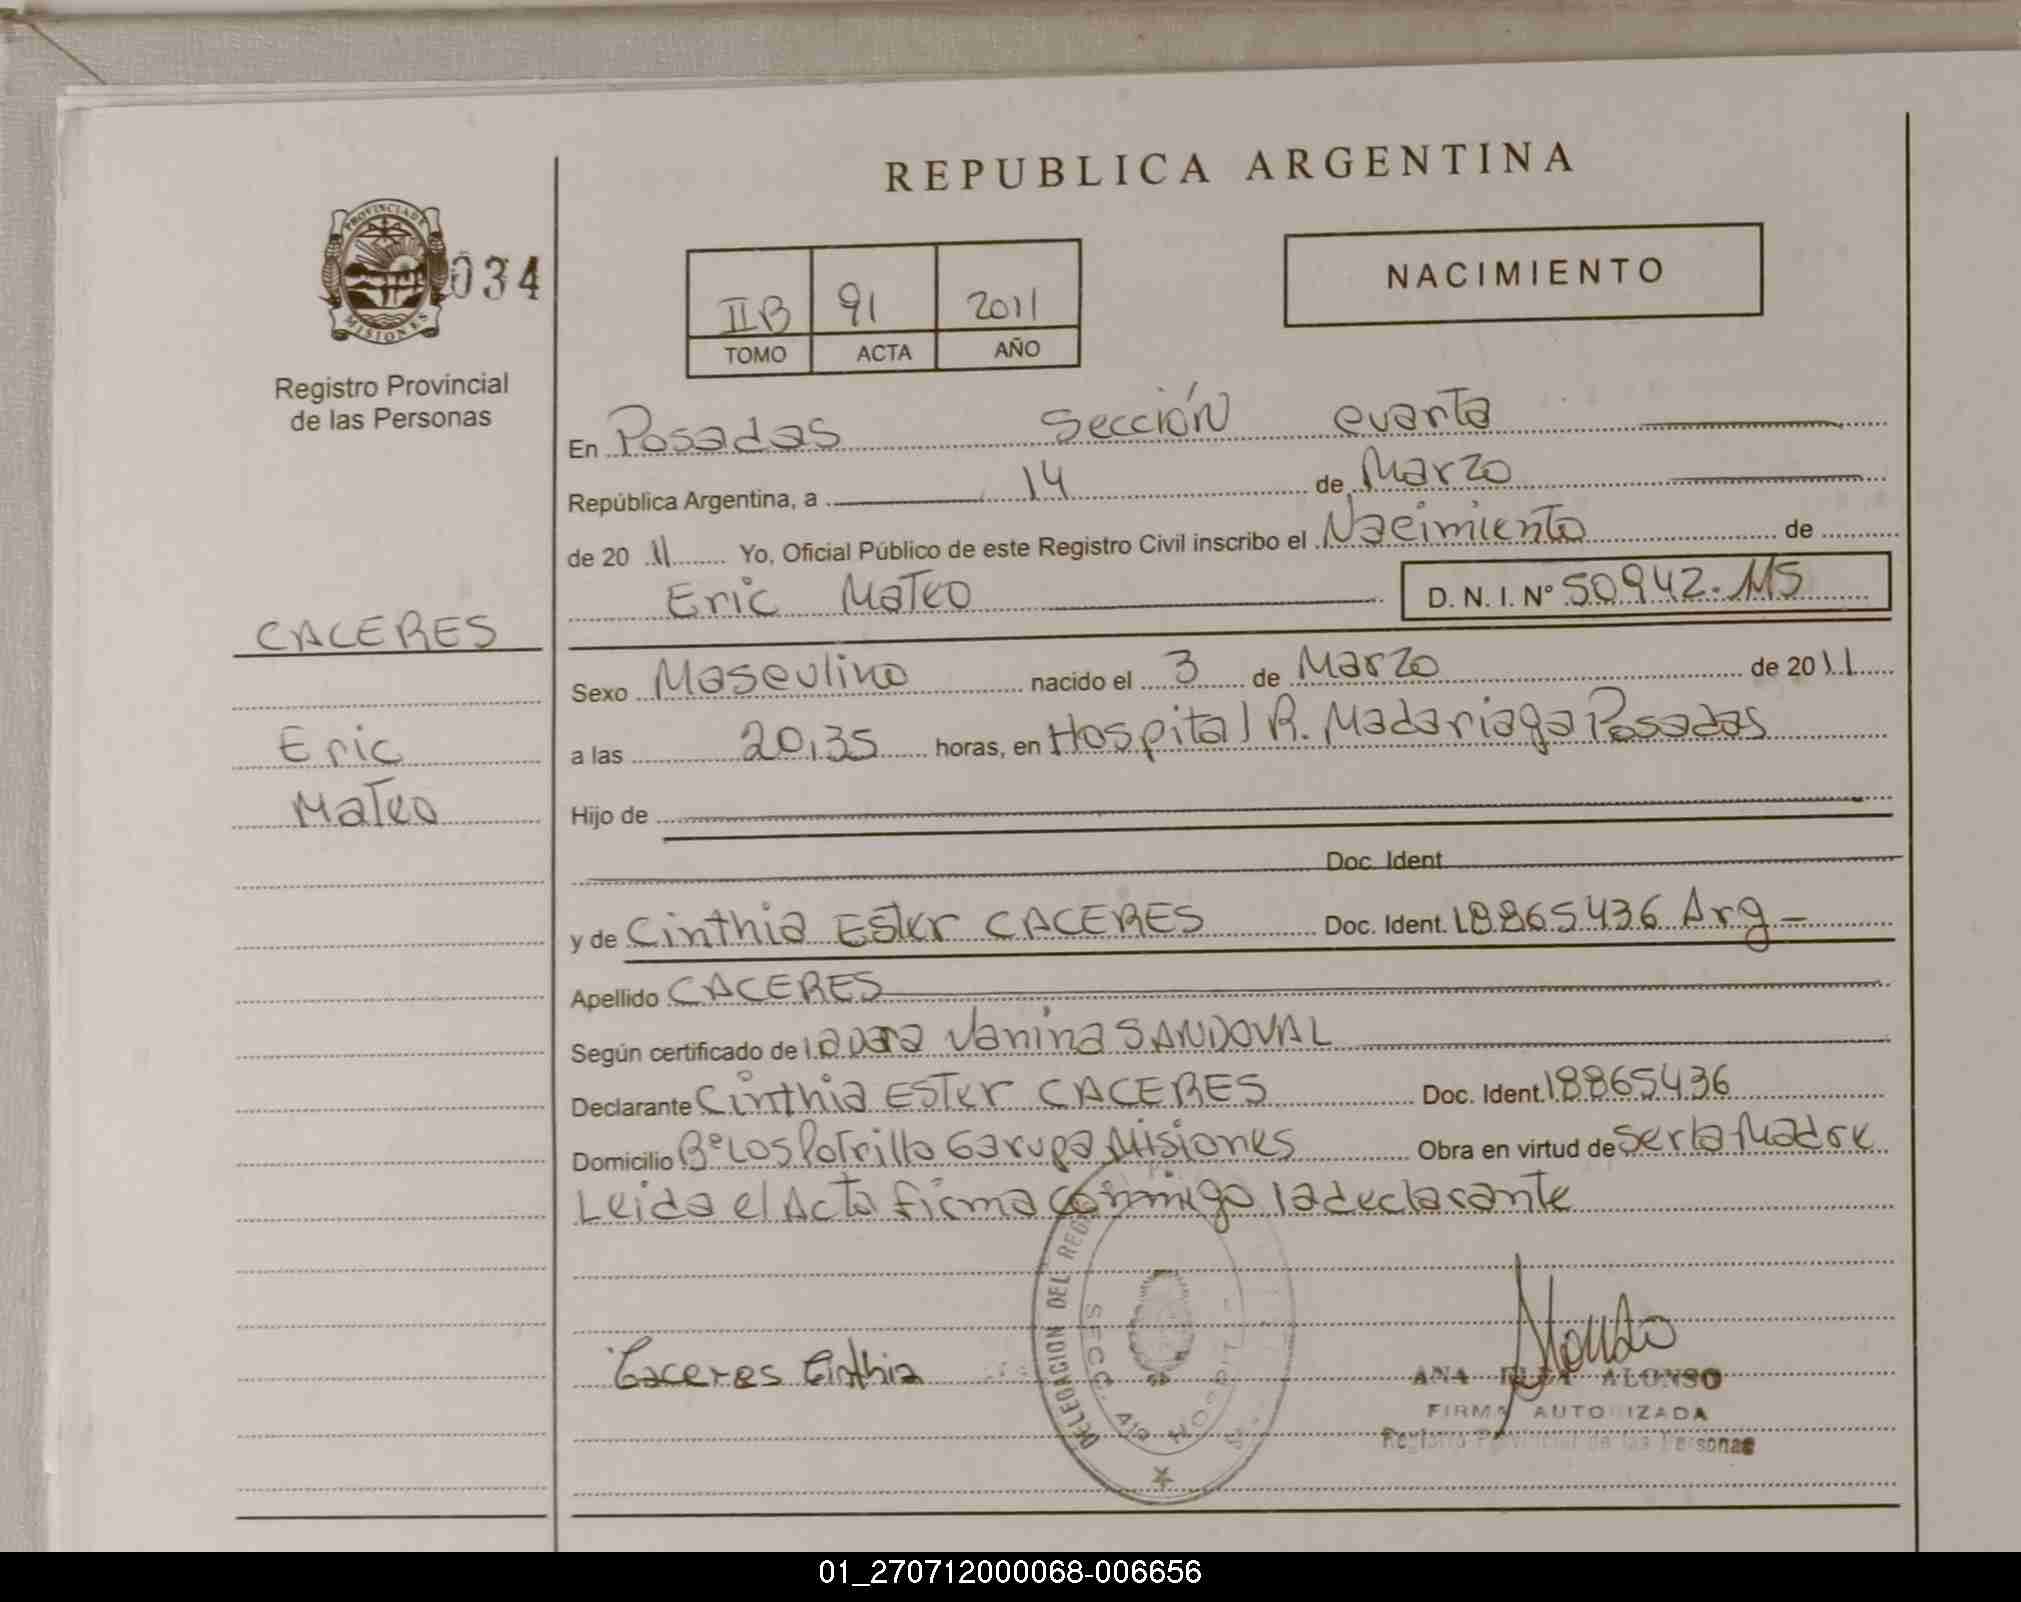 REPUBLICA ARGENTINA
PROVINCIA DE
MISIONES
034
Registro Provincial
de las Personas
IIB 91 2011
TOMO ACTA AÑO
NACIMIENTO
En Posadas Sección cuarta
República Argentina, a 14 de Marzo
de 2011 Yo, Oficial Público de este Registro Civil inscribo el Nacimiento de
Eric Mateo D. N. I. Nº 50942.115
CACERES
Eric
Mateo
Sexo Masculino nacido el 3 de Marzo de 2011
a las 20,35 horas, en Hospital R. Madariaga Posadas
Hijo de
Doc. Ident
y de Cinthia Ester CACERES Doc. Ident. 18865436 Arg
Apellido CACERES
Según certificado de Vanina SANDOVAL
Declarante Cinthia Ester CACERES Doc. Ident. 18865436
Domicilio Bº Los Potrillo Garupa Misiones Obra en virtud de ser la Madre
Leida el Acta firma conmigo la declarante
DELEGACION DEL REG
SECC.
Caceres Cinthia
ANA ALONSO
FIRMA AUTORIZADA
Registro Provincial de las Personas
01_270712000068-006656